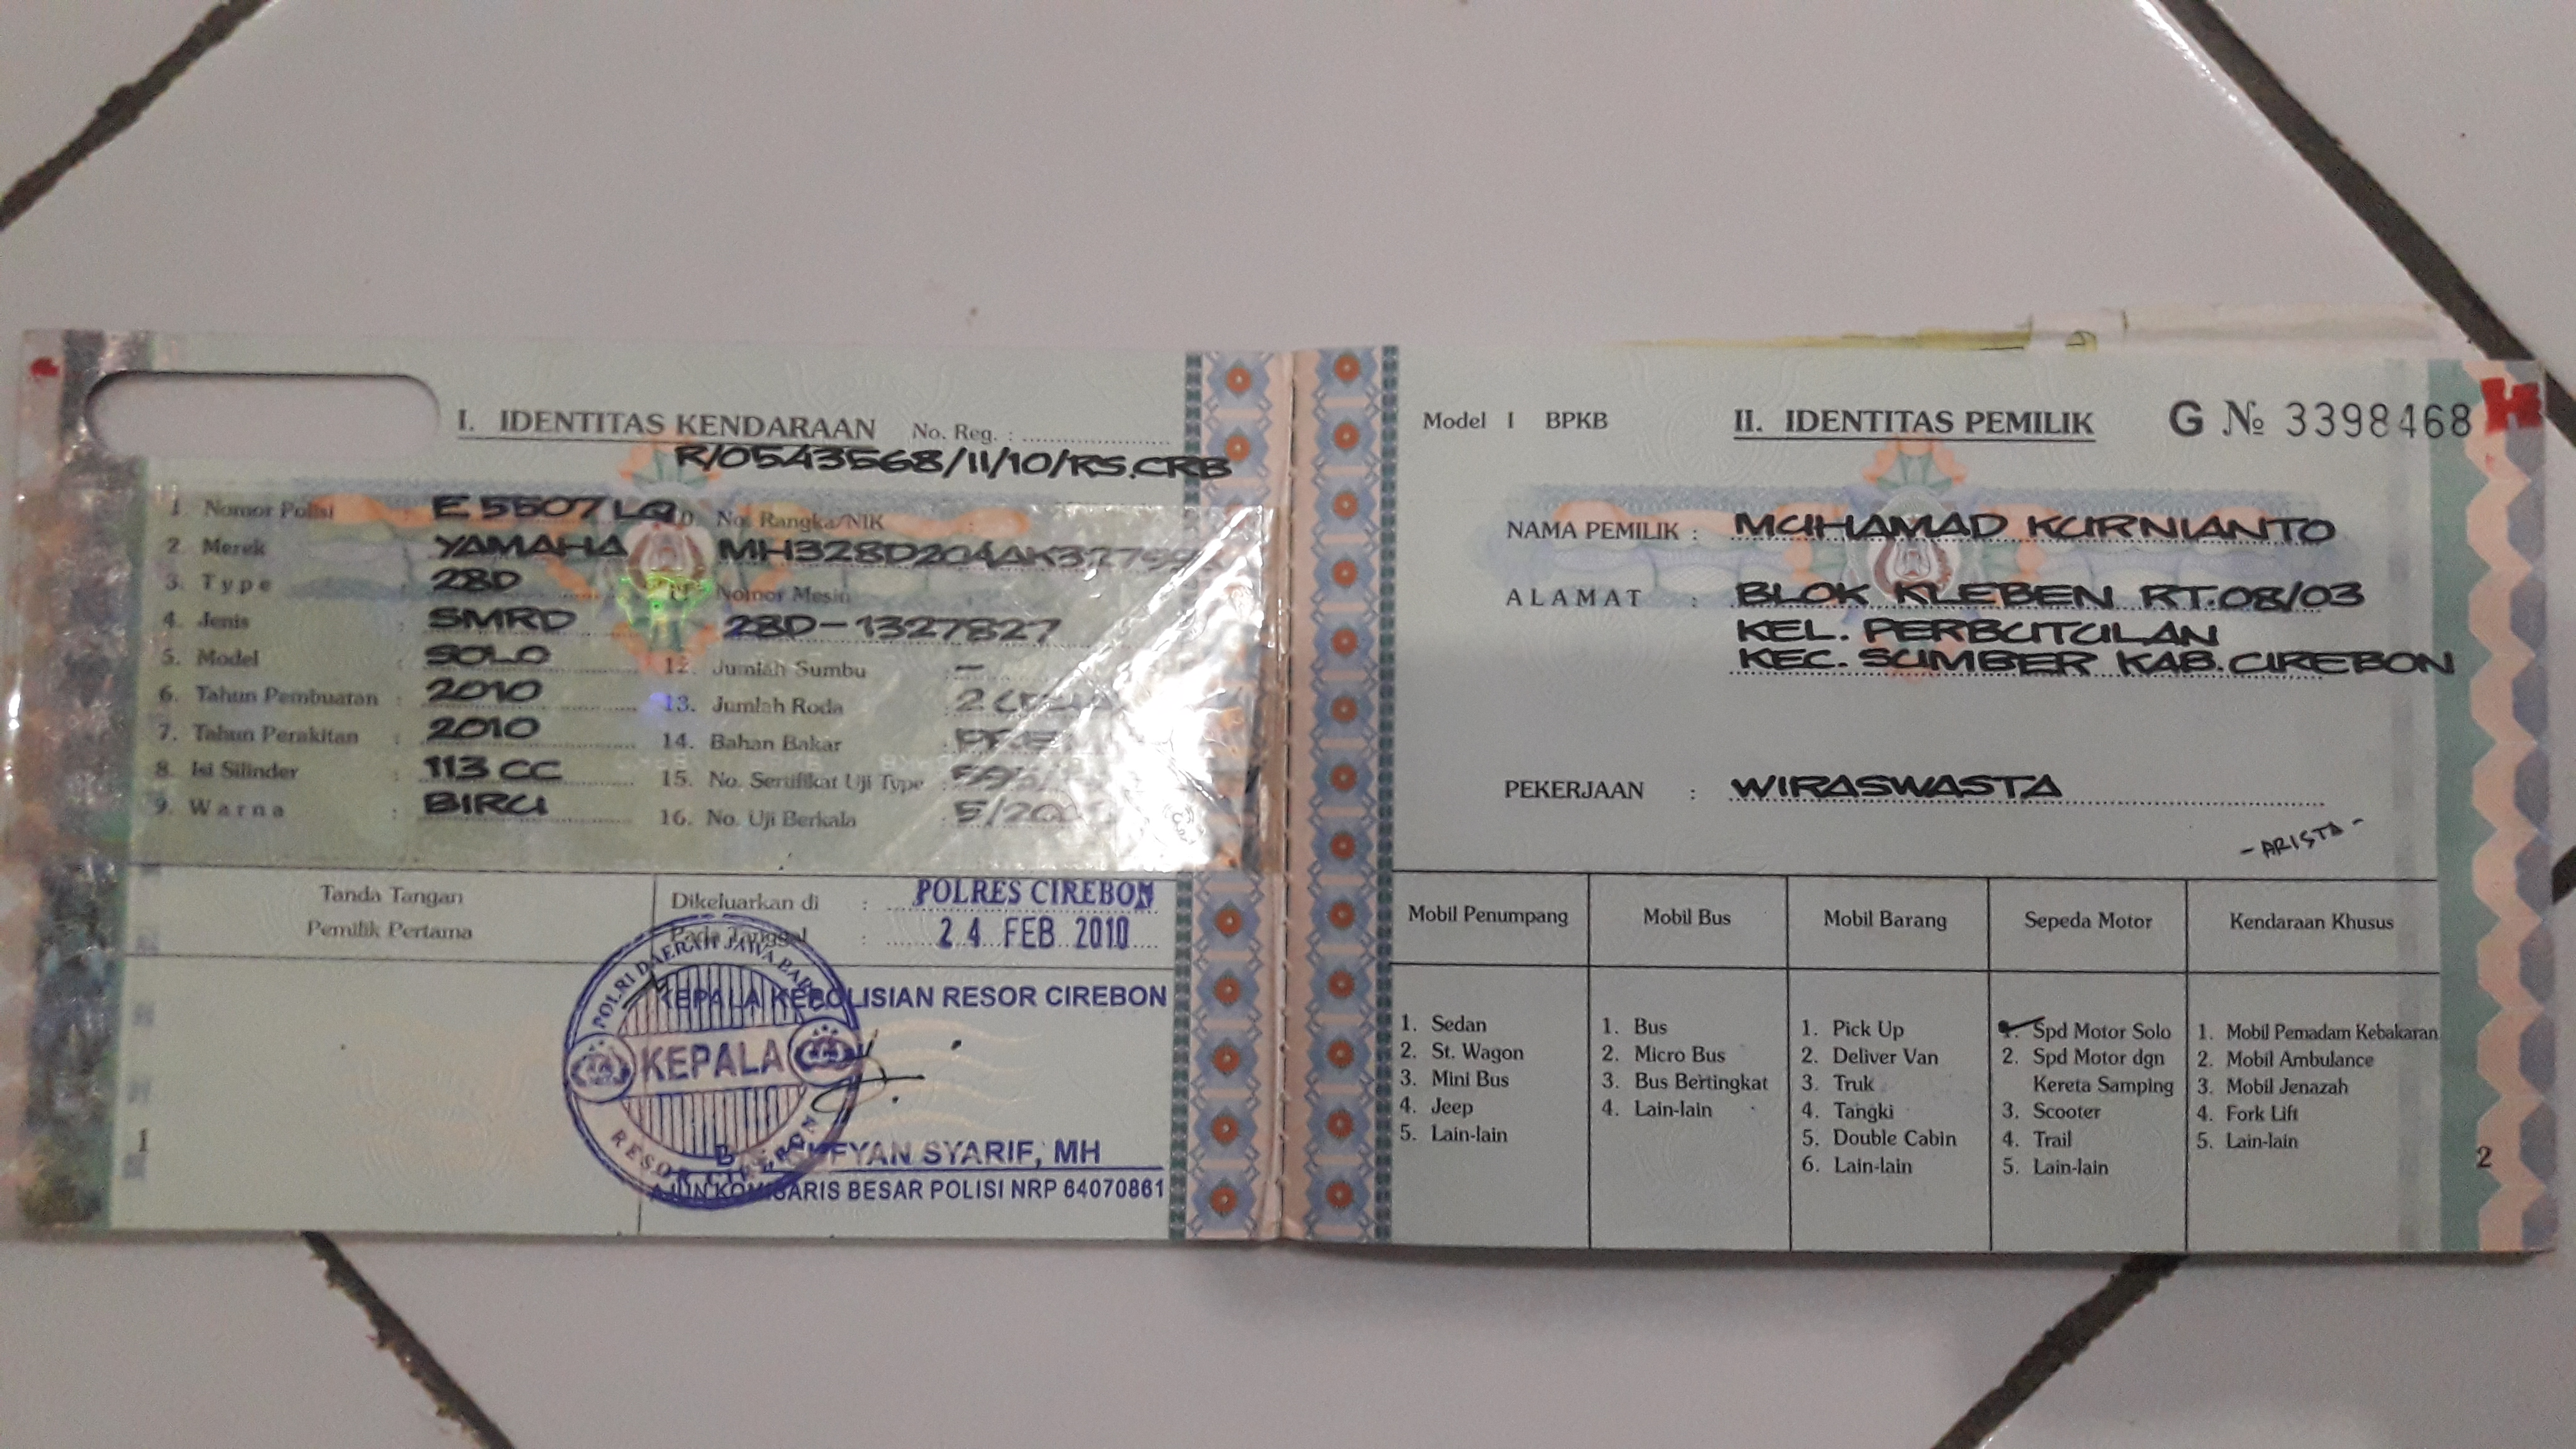 I. IDENTITAS KENDARAAN No. Reg. :
R/0543568/II/10/RS.CRB
1. Nomor Polisi E 5507 LQ
2. Merek YAMAHA
3. Type 28D
4. Jenis : SMRD
5. Model : SOLO
6. Tahun Pembuatan : 2010
7. Tahun Perakitan : 2010
8. Isi Silinder : 113 CC
9. Warna : BIRU
No. Rangka/NIK
Nomor Mesin
28D-1327827
12. Jumlah Sumbu : -
13. Jumlah Roda : 2
14. Bahan Bakar :
15. No. Sertifikat Uji Type :
16. No. Uji Berkala :
Tanda Tangan
Pemilik Pertama
Dikeluarkan di : POLRES CIREBON
Pada Tanggal : 24 FEB 2010
KEPALA KEPOLISIAN RESOR CIREBON
POLRI DAERAH JAWA BARAT
KEPALA
RESOR CIREBON
SYARIF, MH
AJUN KOMISARIS BESAR POLISI NRP 64070861
1
Model I BPKB II. IDENTITAS PEMILIK G № 3398468
NAMA PEMILIK : MUHAMAD KURNIANTO
ALAMAT : BLOK KLEBEN RT.08/03
KEL. PERBUTULAN
KEC. SUMBER KAB. CIREBON
PEKERJAAN : WIRASWASTA
- ARISTA -
Mobil Penumpang
1. Sedan
2. St. Wagon
3. Mini Bus
4. Jeep
5. Lain-lain
Mobil Bus
1. Bus
2. Micro Bus
3. Bus Bertingkat
4. Lain-lain
Mobil Barang
1. Pick Up
2. Deliver Van
3. Truk
4. Tangki
5. Double Cabin
6. Lain-lain
Sepeda Motor
1. Spd Motor Solo
2. Spd Motor dgn
Kereta Samping
3. Scooter
4. Trail
5. Lain-lain
Kendaraan Khusus
1. Mobil Pemadam Kebakaran
2. Mobil Ambulance
3. Mobil Jenazah
4. Fork Lift
5. Lain-lain
2